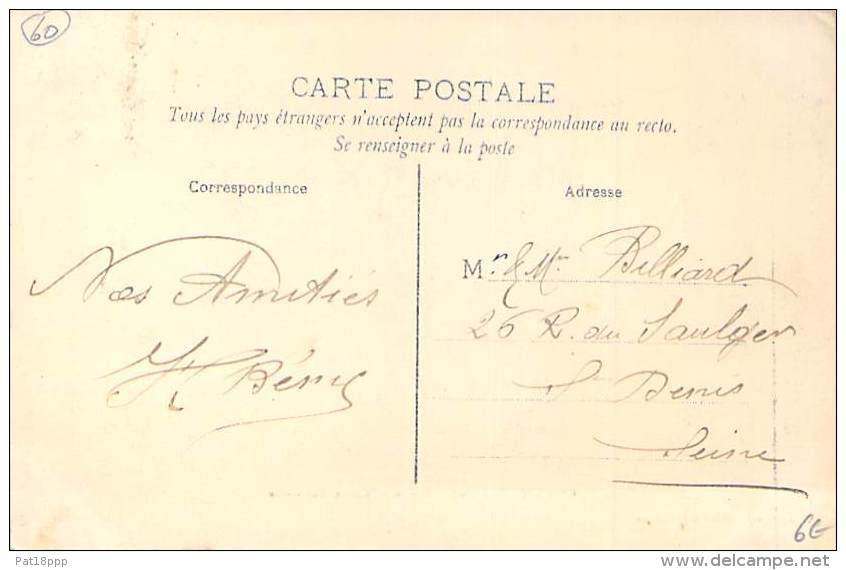 60
CARTE POSTALE
Tous les pays étrangers n'acceptent pas la correspondance au recto.
Se renseigner à la poste
Correspondance
Nos Amitiés
Adresse
Mr & Mme Billiard
26 R. du Saulger
St Denis
Seine
6€
Pat18ppp
delcampe.net